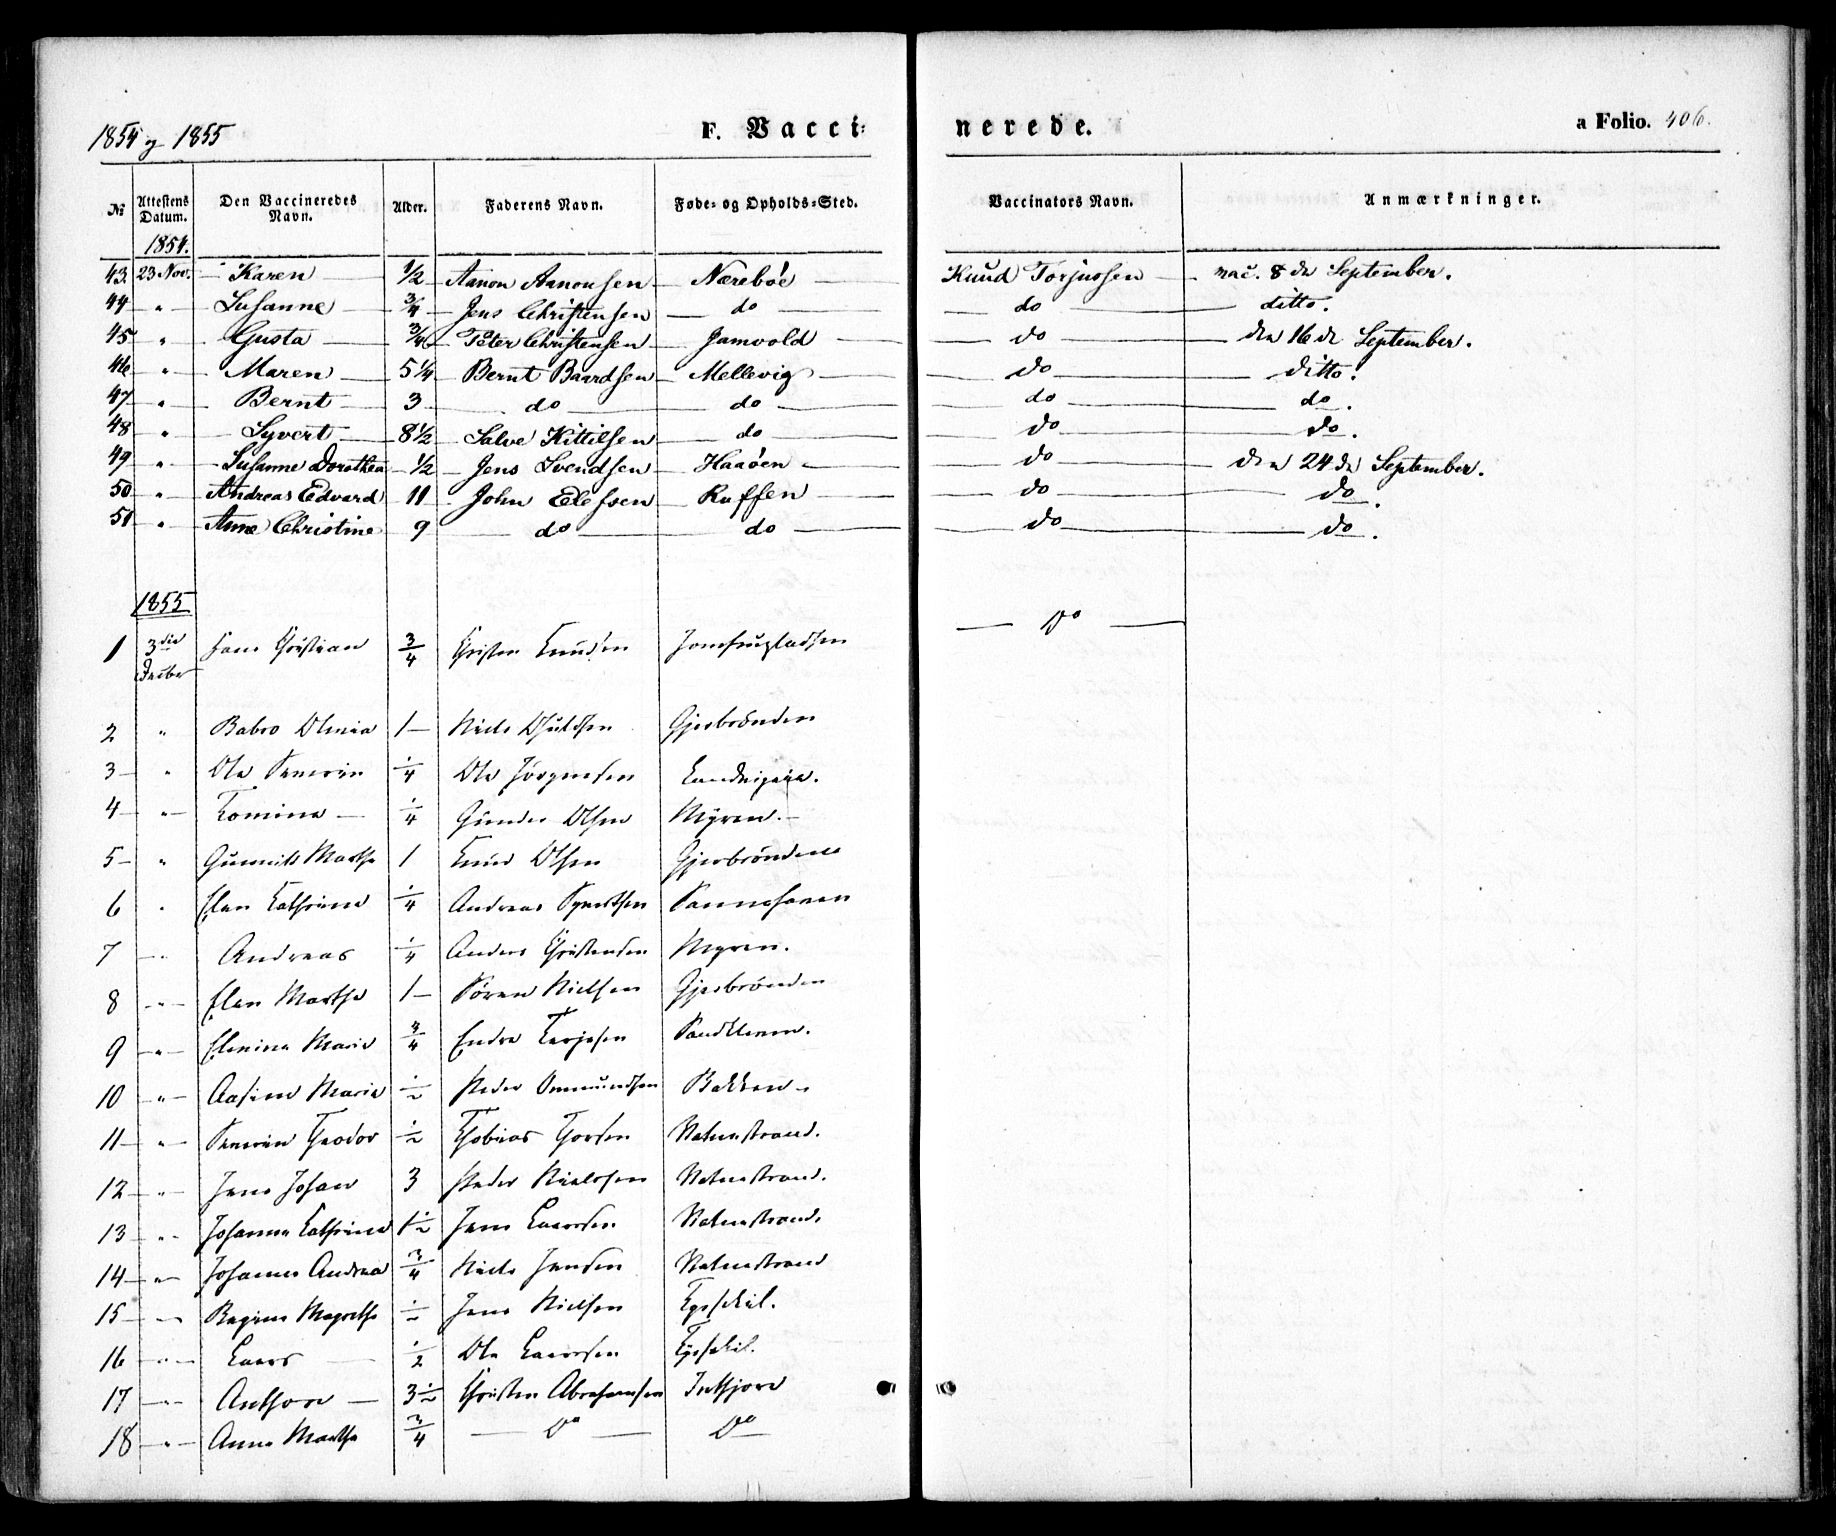 1854 og 1855 F. Vacci= nerede. a Folio. 406.
№ Attestens Datum. Den Vaccineredes Navn. Alder. Faderens Navn. Føde= og Opholds=Sted. Vaccinators Navn. Anmærkninger.
1854.
43 23 Nov. Karen 1/2 Aanon Aanonsen Nærebøe Knud Torjussen vac. 8de September.
44 " Susanne 3/4 Jens Christensen do do ditto.
45 " Gusta 3/4 Peter Christensen Jamvold do den 16de September.
46 " Maren 5 1/4 Bernt Baardsen Mellevig do ditto.
47 " Bernt 3 do do do do.
48 " Syvert 8 1/2 Salve Kittilsen do do do.
49 " Susanne Dorothea 1/2 Jens Svendsen Haaøen do den 24de September.
50 " Andreas Edvard 11 John Elefsen Ruffen do do.
51 " Anne Christine 9 do do do do.
1855
1 3die Hans Christian 3/4 Christen Knudsen Jomfrupladsen Do
Decbr
2 " Babro Olenia 1 Niels Gjerbrønden
3 " Ole Severin 1/4 Ole Jørgensen
4 " Tomine 1/4 Gunder Olsen Myren.
5 " Gunnild Marthe 1 Knud Olsen Gjerbrønden
6 " Elen Cathrine 1/4 Andreas Syvertsen Sannehaven
7 " Andreas 1/4 Anders Christensen Myren.
8 " Elen Marthe 1 Søren Nielsen Gjerbrønden
9 " Elenine Marie 3/4 Endre Terjesen Sandkleven.
10 " Aasine Marie 1/2 Peder Ommundsen Bakken
11 " Severin Theodor 1/2 Thobias Thorsen Natvestrand.
12 " Jens Johan 3 Peder Nielssen Natvestrand.
13 " Johanne Cathrine 1 1/2 Jens Laarssen Natvestrand.
14 " Johanne Andrea 3/4 Niels Jensen Natvestrand
15 " Regine Magrethe 1/2 Jens Nielsen
16 " Laars 1/2 Ole Laarssen
17 " Anthore 3 1/2 Christen Abrahamsen Indtjore
18 " Anne Marthe 3/4 Do Do